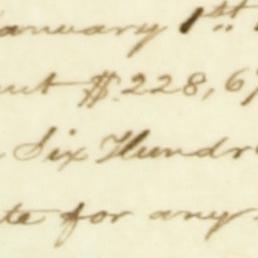 January 1st
$228,6
Six Hundr
for any